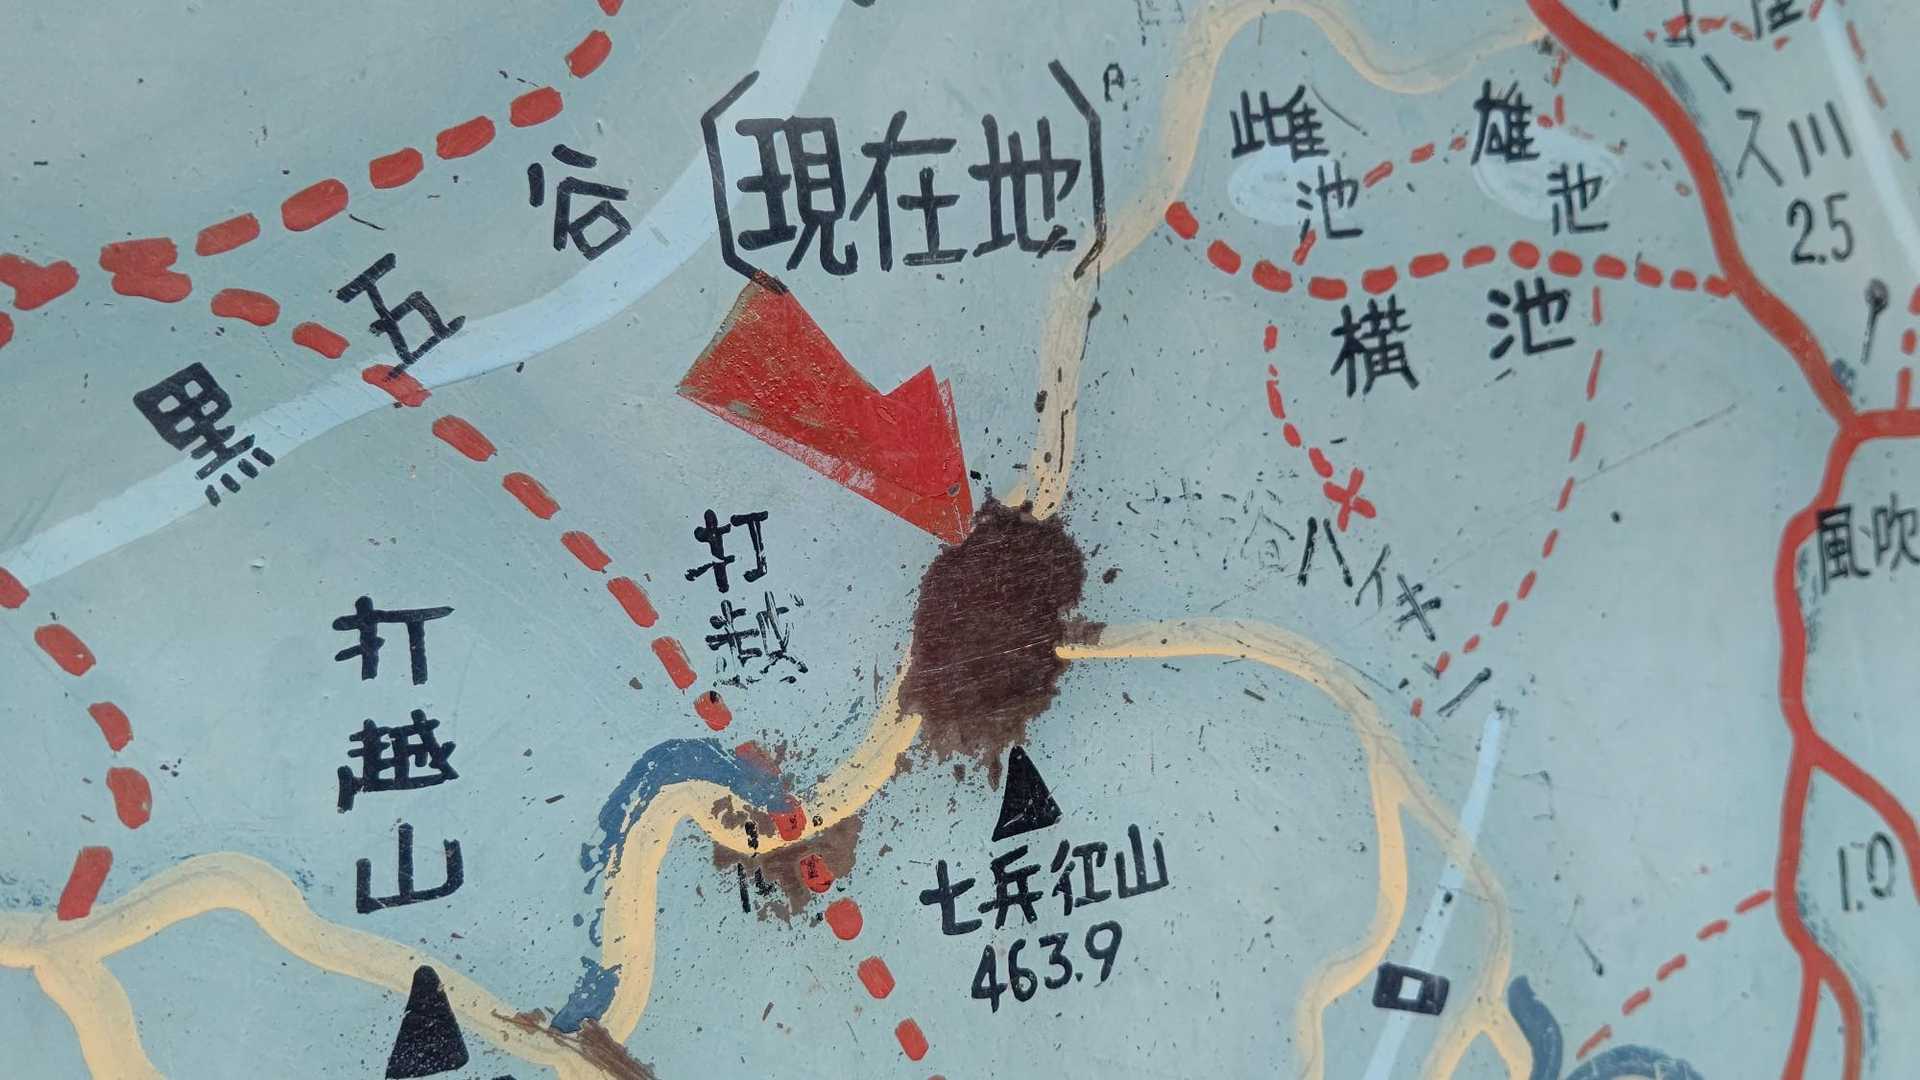 〔現在地〕
雌池
雄池
ス川
2.5
黒五谷
横池
打越
風吹
浴ハイキン
打越山
七兵衛山
463.9
1.0